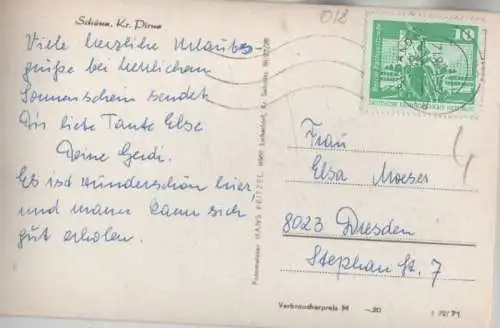 Schöna, Kr. Pirna
Viele herzliche Urlaubs-
grüße bei herrlichem
Sonnenschein sendet
Dir liebe Tante Else
Deine Gerdi.
Es ist wunderschön hier,
und mann kann sich
gut erholen.
018
10
DEUTSCHE DEMOKRATISCHE REPUBLIK
Frau
Elsa Moeser
8023 Dresden
Stephan St. 7
4
HANS FRITZEL
Verbraucherpreis M -.20
/71